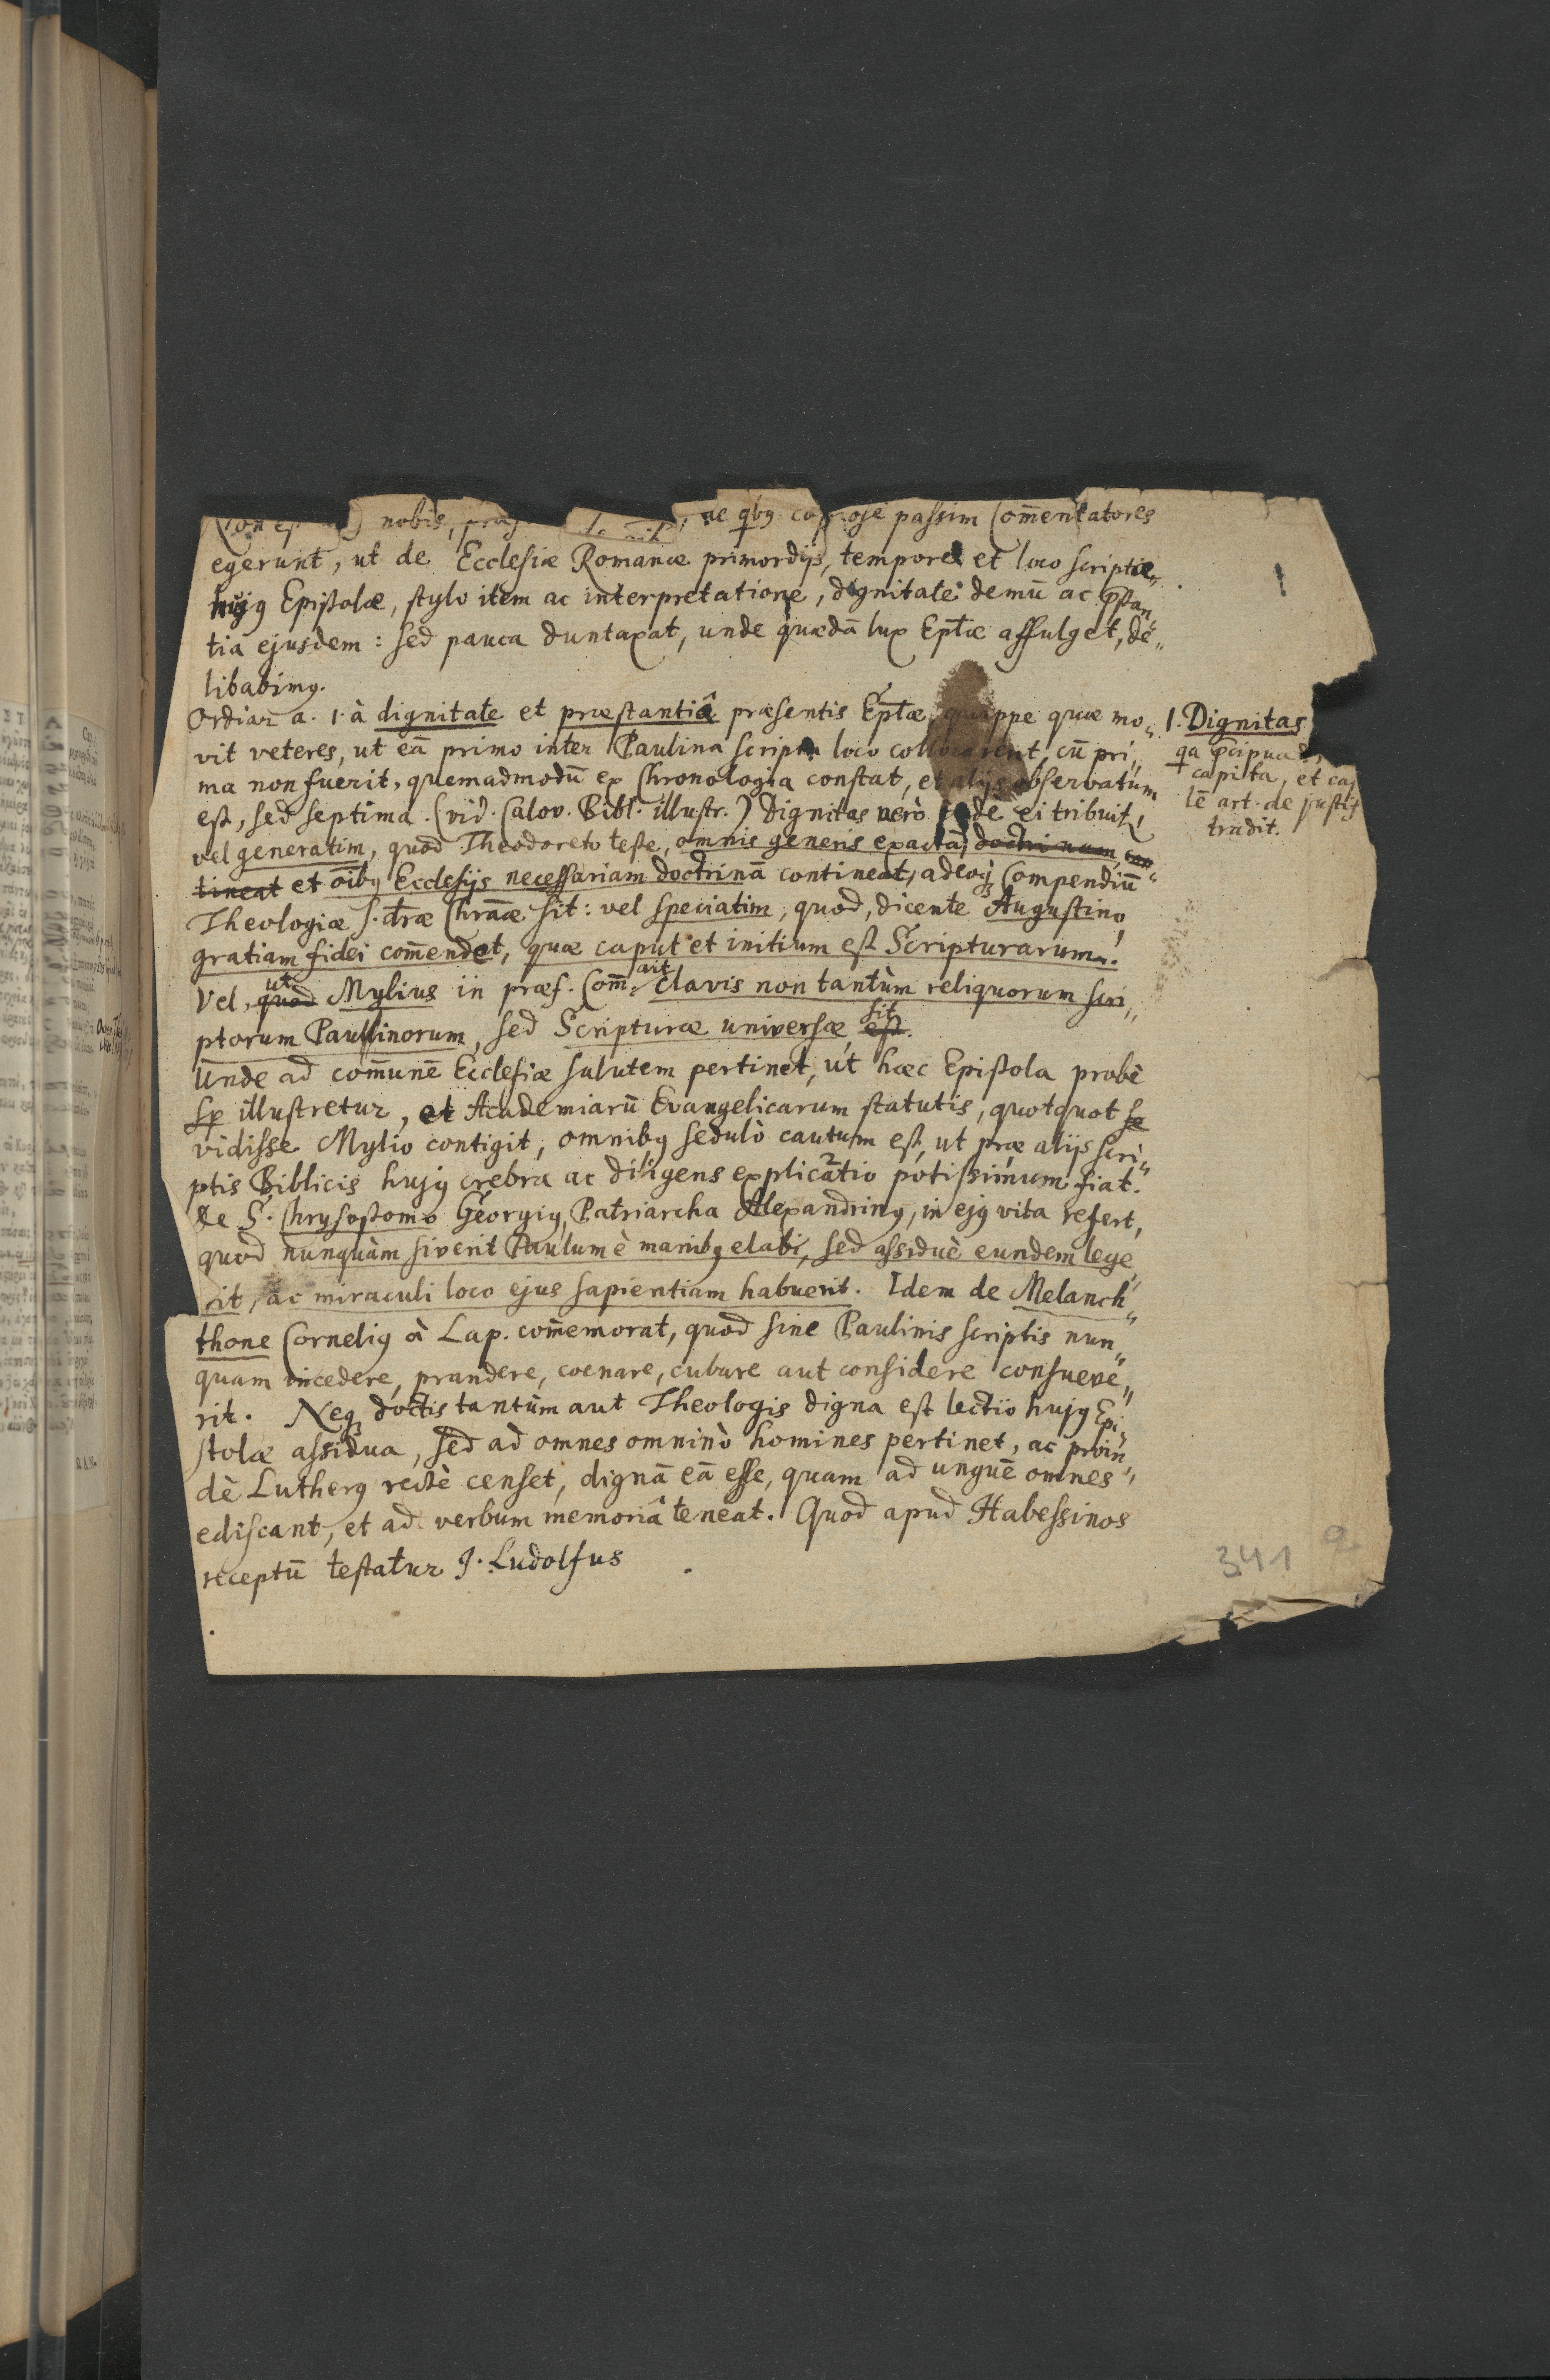 nobis, de qbꝫ copiose passim Com̄entatores
egerunt, ut de Ecclesiæ Romanæ primordijs, tempore et loco scriptæ„
hujꝰ Epistolæ, stylo item ac interpretatione, dignitate demū ac p̄stan„
tia ejusdem: sed pauca duntaxat, unde quædā lux Ep̄tæ affulget, de„
libabimꝰ.
Ordiar a. 1. à dignitate et præstantiâ præsentis Ep̄tæ, quippe quæ mo„
vit veteres, ut eā primo inter Paulina scripta loco collocarent, cū pri„
ma non fuerit, quemadmodū ex Chronologia constat, et alijs observatum
est, sed septima. (vid. Calov. Bibl. illustr.) Dignitas verò inde ei tribuit,
vel generatim, quod Theodoreto teste, omnis generis exactā, doctrinam con„
tineat et oībꝫ Ecclesijs necessariam doctrinā contineat, adeoqꝫ Compendiū
Theologiæ s. dtræ Chrāæ sit: vel speciatim, quod, dicente Augustino,
gratiam fidei com̄endet, quæ caput et initium est Scripturarum.
Vel, quod ut Mylius in præf. Com̄. ait clavis non tantùm reliquorum scri„
ptorum Paulinorum, sed Scripturæ universæ est sit.
Unde ad comunē Ecclesiæ salutem pertinet, ut hæc Epistola probè
sp illustretur, et Academiarū Evangelicarum statutis, quotquot se
vidisse Mylio contigit, omnibꝫ sedulò cautum est, ut præ alijs scri„
ptis Biblicis hujꝰ crebra ac diligens explicatio potissimum fiat.
De S. Chrysostomo Georgiꝰ, Patriarcha Alexandrinꝰ, in ejꝰ vita refert,
quod nunquàm siverit Paulum è manibꝫ elabi, sed assiduè eundem lege„
rit, ac miraculi loco ejus sapientiam habuerit. Idem de Melanch„
thone Corneliꝰ à Lap. com̄emorat, quod sine Paulinis scriptis nun„
quam incedere, prandere, coenare, cubare aut considere consueve„
rit. Neqꝫ doctis tantùm aut Theologis digna est lectio hujꝰ Epi„
stolæ assidua, sed ad omnes omninò homines pertinet, ac proin„
dè Lutherꝰ rectè censet, dignā eā esse, quam ad unguē omnes
ediscant, et ad verbum memoriâ teneat. Quod apud Habessinos
receptū testatur J. Ludolfus
1
1. Dignitas
qa p̄cipua
capita, et
lē art. de justif
tradit.
341
2